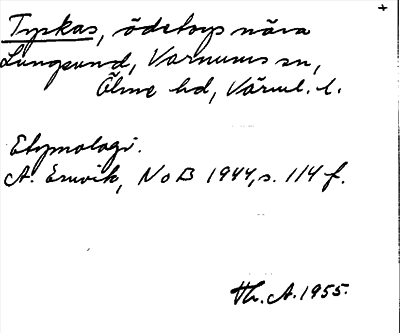 Tyskas, ödetorp nära
Lungsund, Varnums sn,
Ölme hd, Värml. l.
Etymologi.
A. Ernvik, NoB 1944, s. 114 f.
Th. A. 1955.